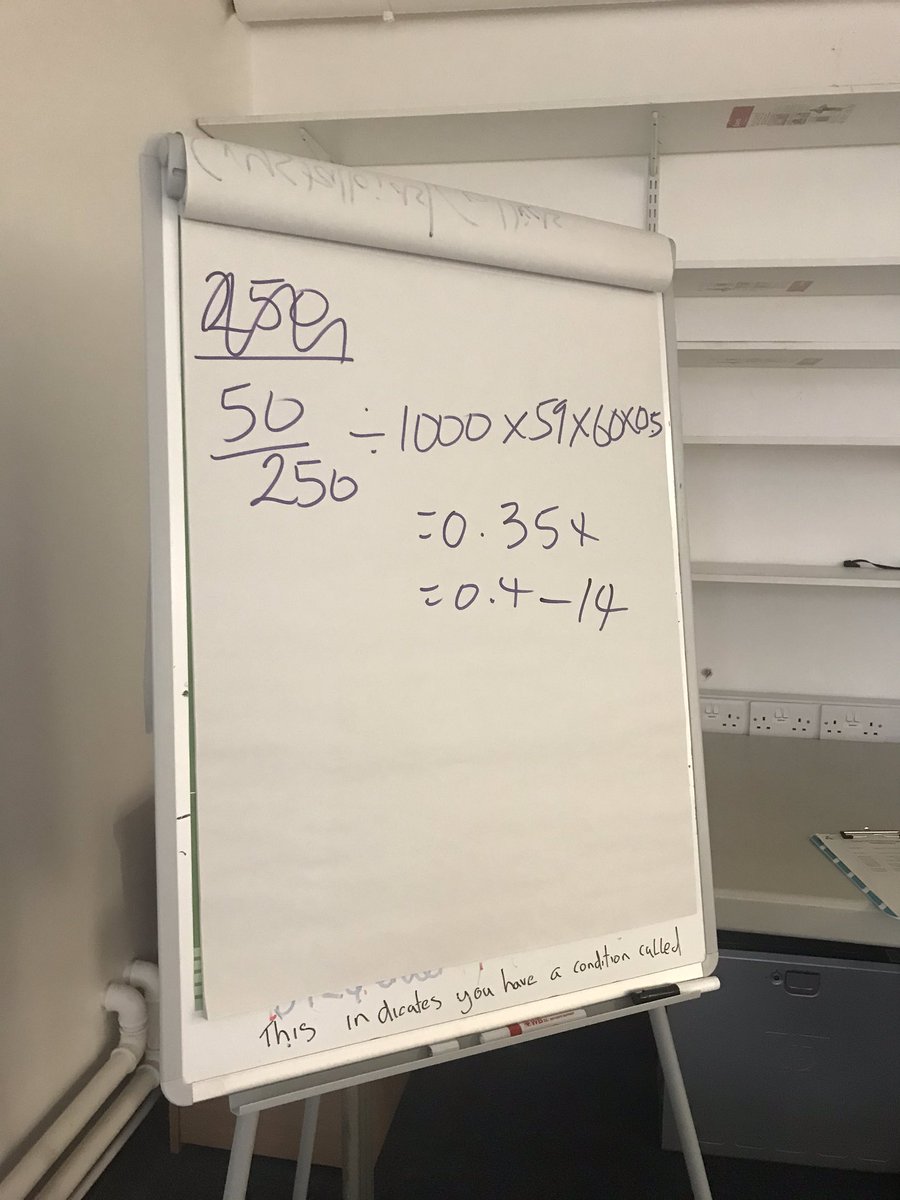 250
50
250
÷1000×59×60×0.5
=0.35x
=0.4-14
This indicates you have a condition called